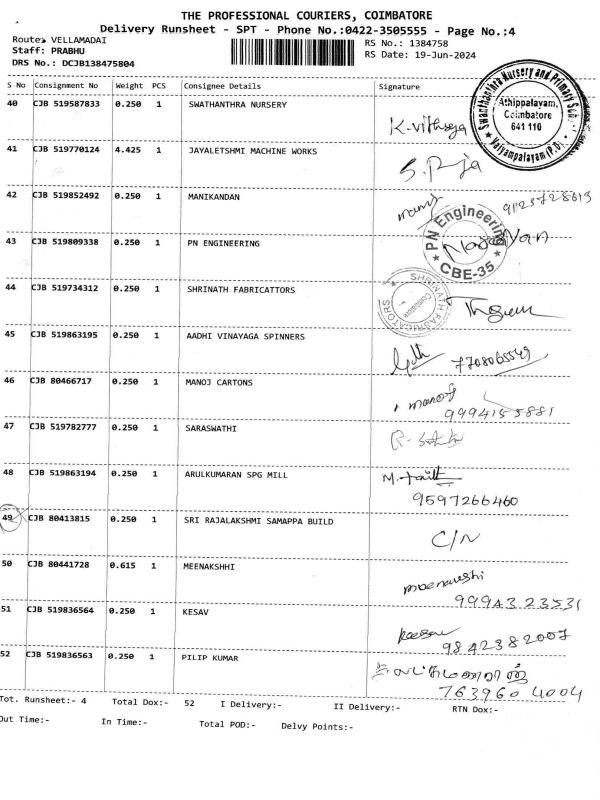 THE PROFESSIONAL COURIERS, COIMBATORE
Delivery Runsheet - SPT - Phone No.:0422-3505555 - Page No.:4
Route: VELLAMADAI
Staff: PRABHU
DRS No.: DCJB138475804
RS No.: 1384758
RS Date: 19-Jun-2024
S No Consignment No Weight PCS Consignee Details Signature
40 CJB 519587833 0.250 1 SWATHANTHRA NURSERY
Swanthanthra Nursery and Primary School
Athippalayam,
Coimbatore
641 110
Vaiyampalayam (P.O)
41 CJB 519770124 4.425 1 JAYALETSHMI MACHINE WORKS S. Raja
42 CJB 519852492 0.250 1 MANIKANDAN
43 CJB 519809338 0.250 1 PN ENGINEERING
PN Engineering
CBE-35
44 CJB 519734312 0.250 1 SHRINATH FABRICATTORS
SHRINATH FABRICATORS
Coimbatore
45 CJB 519863195 0.250 1 AADHI VINAYAGA SPINNERS
7708065549
46 CJB 80466717 0.250 1 MANOJ CARTONS manoj
9994155881
47 CJB 519782777 0.250 1 SARASWATHI
48 CJB 519863194 0.250 1 ARULKUMARAN SPG MILL
9597266460
49 CJB 80413815 0.250 1 SRI RAJALAKSHMI SAMAPPA BUILD C/N
50 CJB 80441728 0.615 1 MEENAKSHHI
99943 23531
51 CJB 519836564 0.250 1 KESAV
9842382007
52 CJB 519836563 0.250 1 PILIP KUMAR
763960 4004
Tot. Runsheet:- 4 Total Dox:- 52 I Delivery:- II Delivery:- RTN Dox:-
Out Time:- In Time:- Total POD:- Delvy Points:-